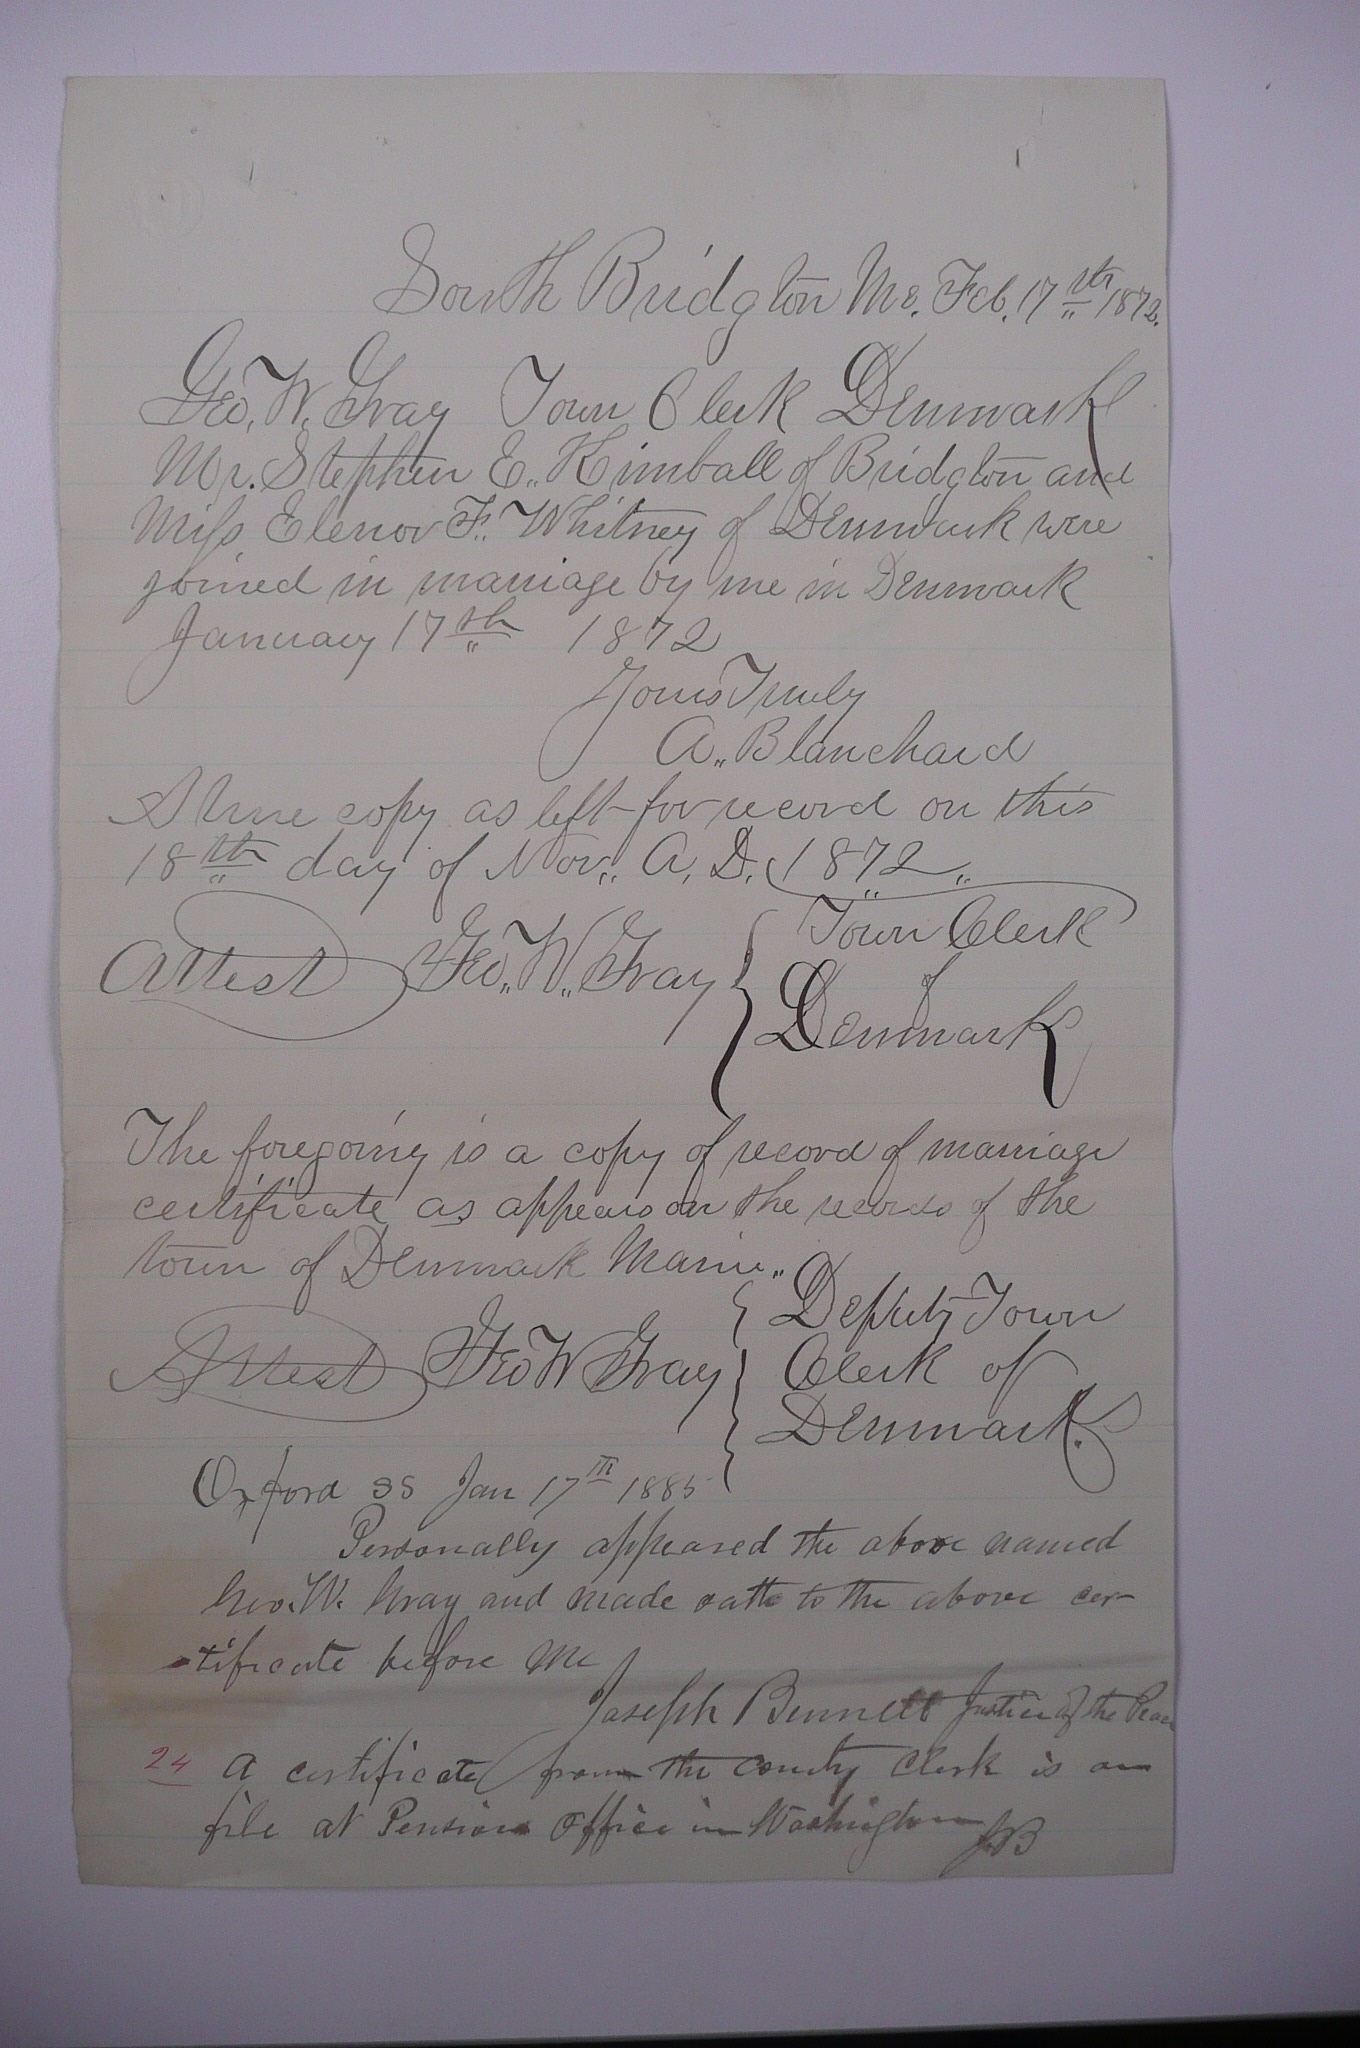 South Bridgton Me. Feb. 17th 1872.
Geo. W. Gray Town Clerk Denmark
Mr. Stephen E. Kimball of Bridgton and
Miss Elenor F. Whitney of Denmark were
joined in marriage by me in Denmark
January 17th 1872
Yours Truly
A. Blanchard
A true copy as left for record on this
18th day of Nov. A. D. 1872.
Attest Geo. W. Gray { Town Clerk
of
Denmark
The foregoing is a copy of record of marriage
certificate as appears on the records of the
town of Denmark Maine.
Attest Geo W Gray { Deputy Town
Clerk of
Denmark.
Oxford SS Jan 17th 1885
Personally appeared the above named
Geo. W. Gray and made oath to the above cer-
-tificate before me
Joseph Bennett Justice of the Peace
24 A certificate from the County Clerk is on
file at Pension Office in Washington JB